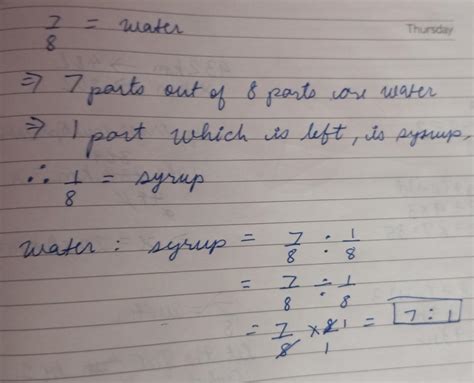 7/8 = water
Thursday
⇒ 7 parts out of 8 parts are water
⇒ 1 part which is left, is syrup,
∴ 1/8 = syrup
water : syrup = 7/8 : 1/8
= 7/8 ÷ 1/8
= 7/8 × 8/1 = 7 : 1